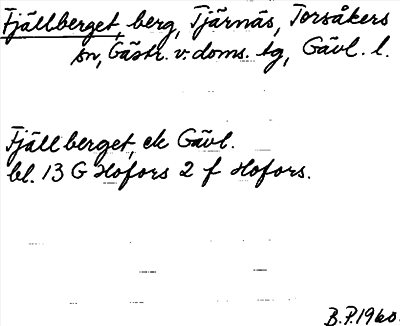 Fjällberget, berg, Tjärnäs, Torsåkers
sn, Gästr. v. doms. tg, Gävl. l.
Fjällberget, ek Gävl.
bl. 13 G Hofors 2 f Hofors.
B.P. 1960.